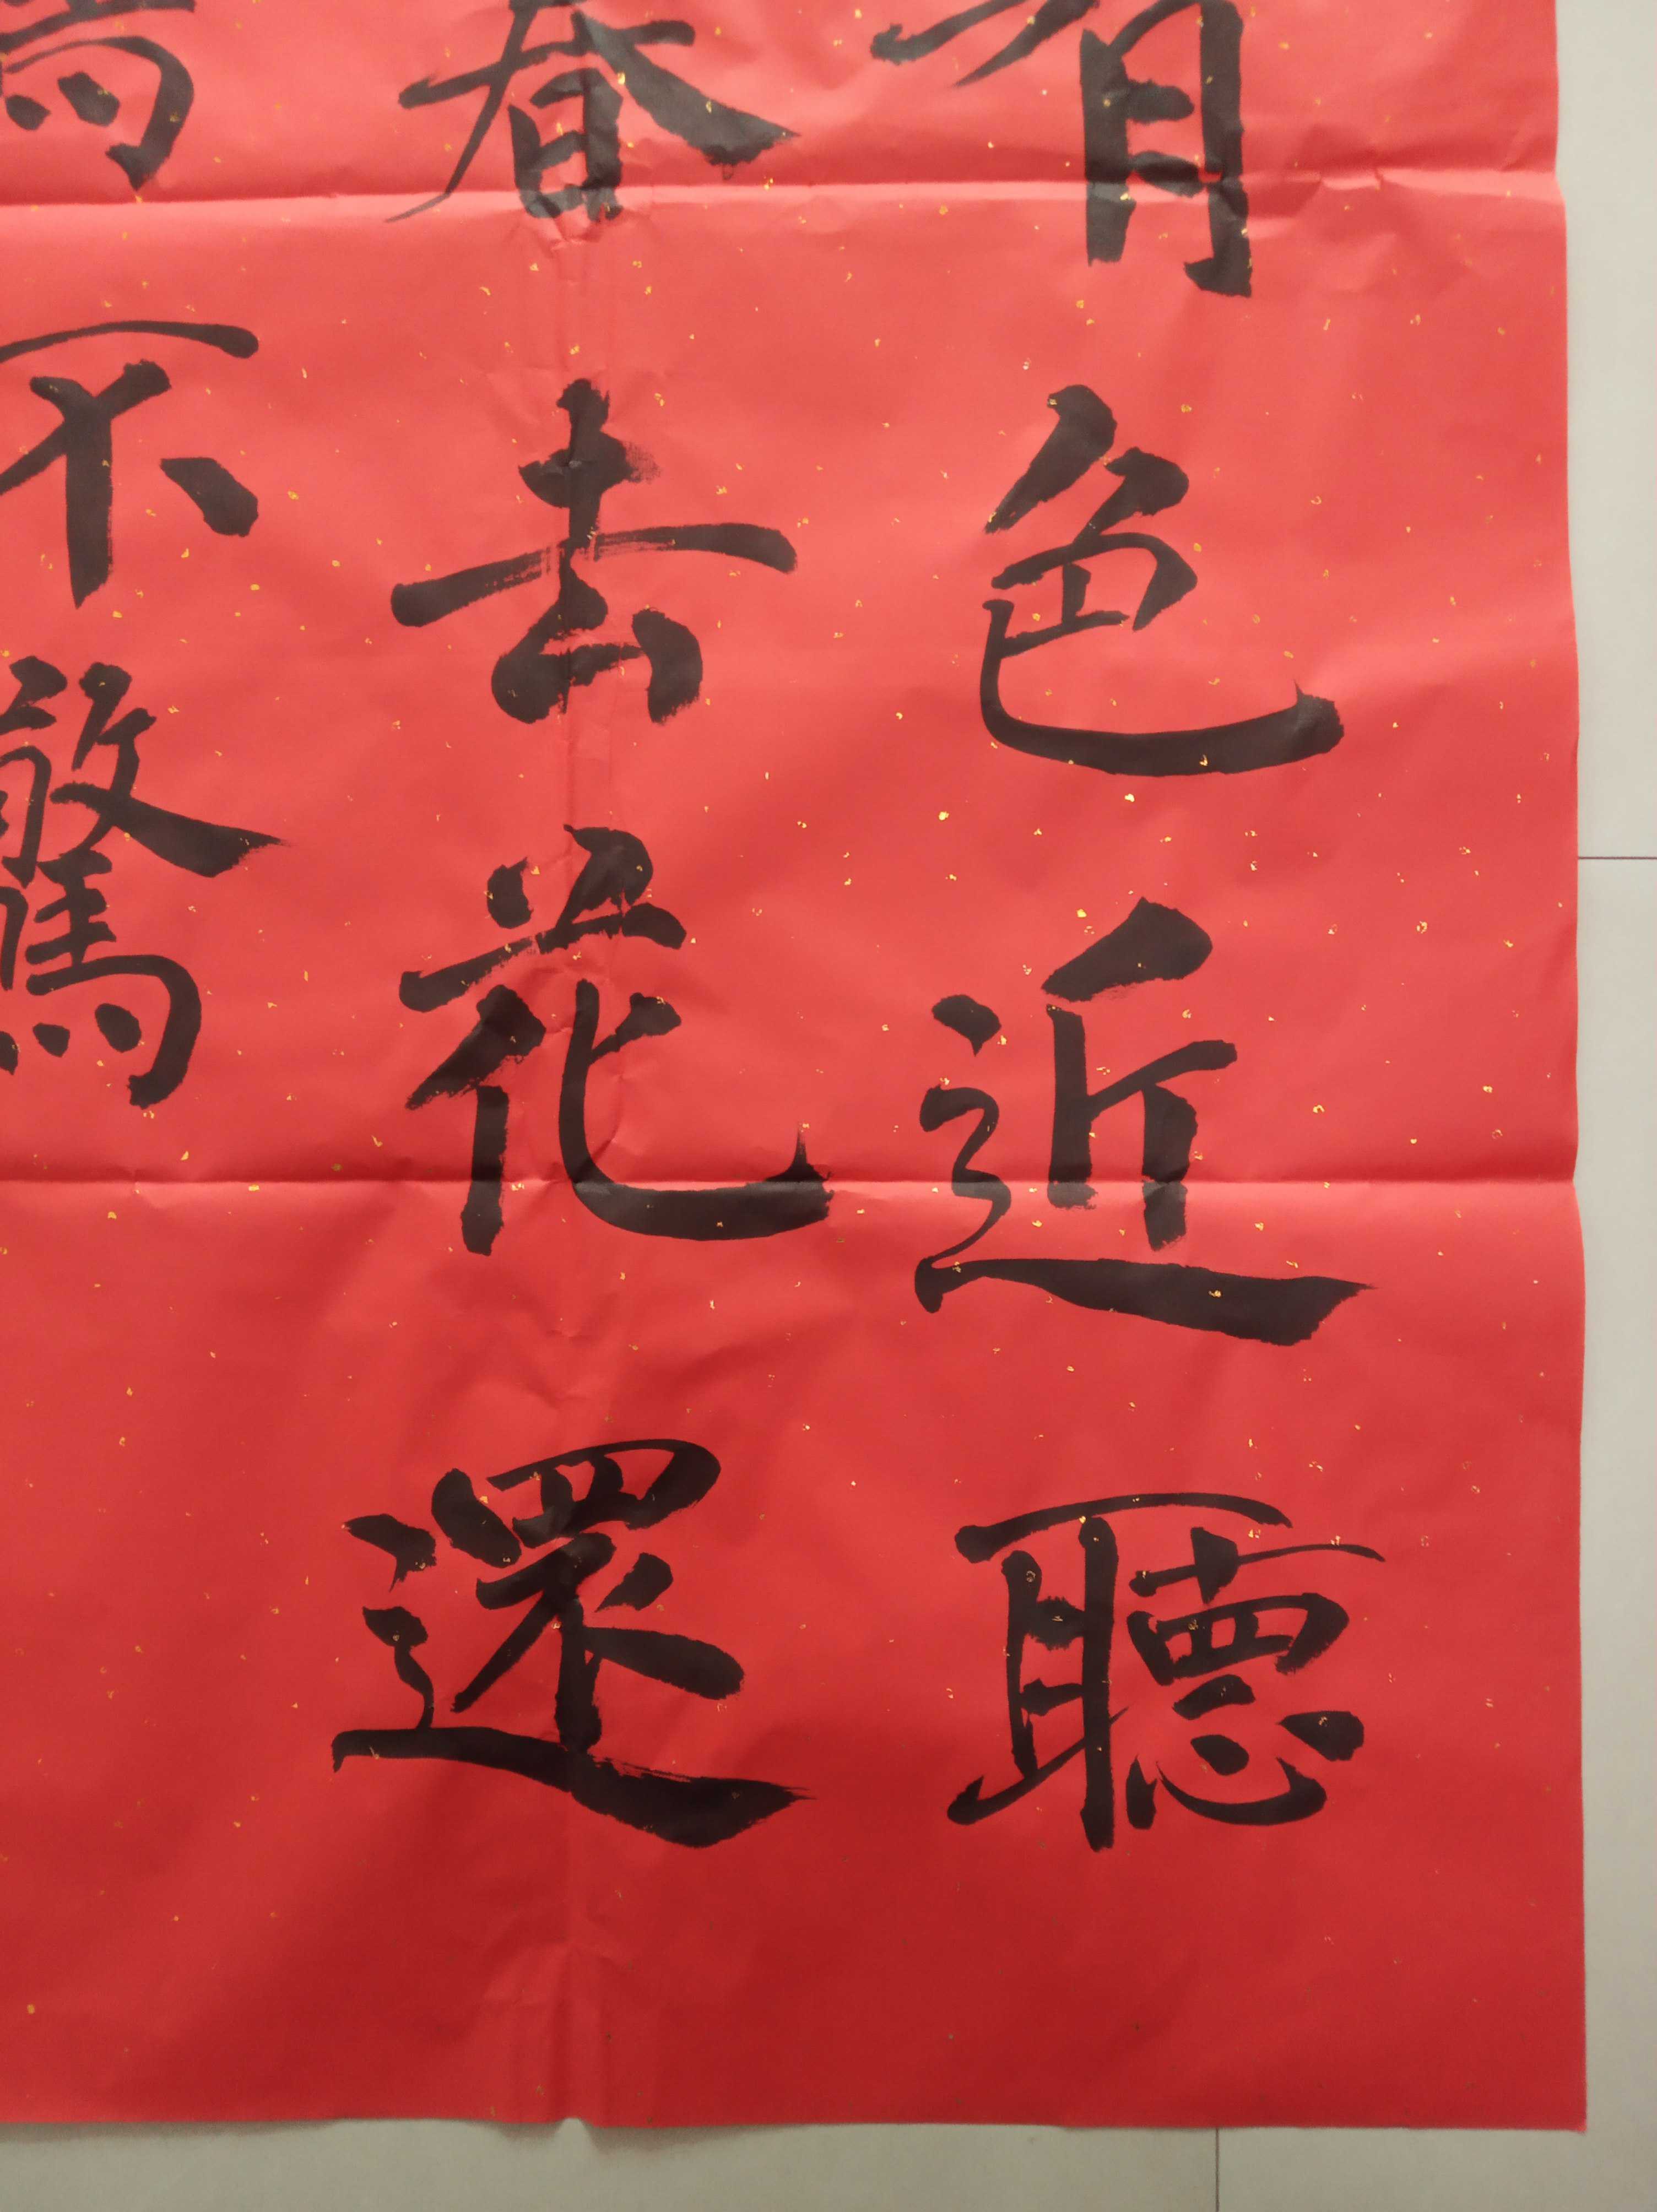 有色近聽
春去花還
不驚